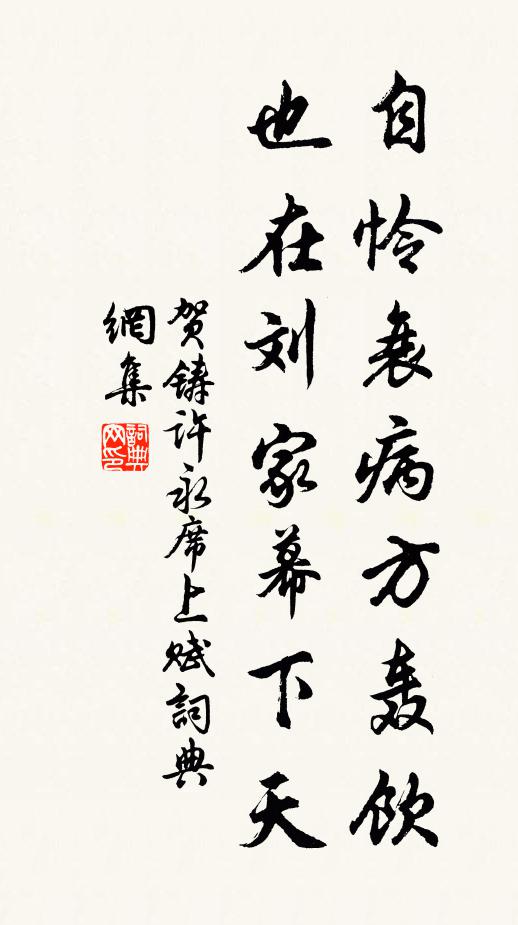 自怜衰病方轰饮
也在刘家幕下天
贺铸许永席上赋詞典
網集
詞典网印